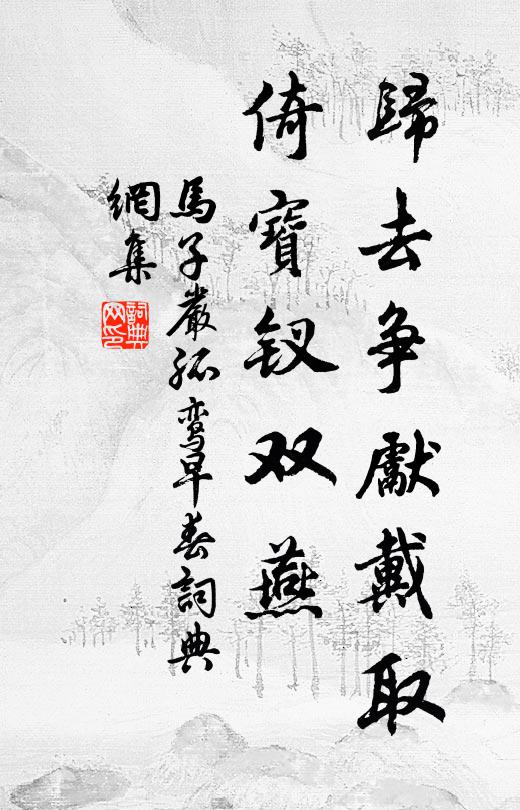 歸去争獻戴取
倚寶钗双燕
馬子嚴孤鸾早春詞典
網集
詞典
网印